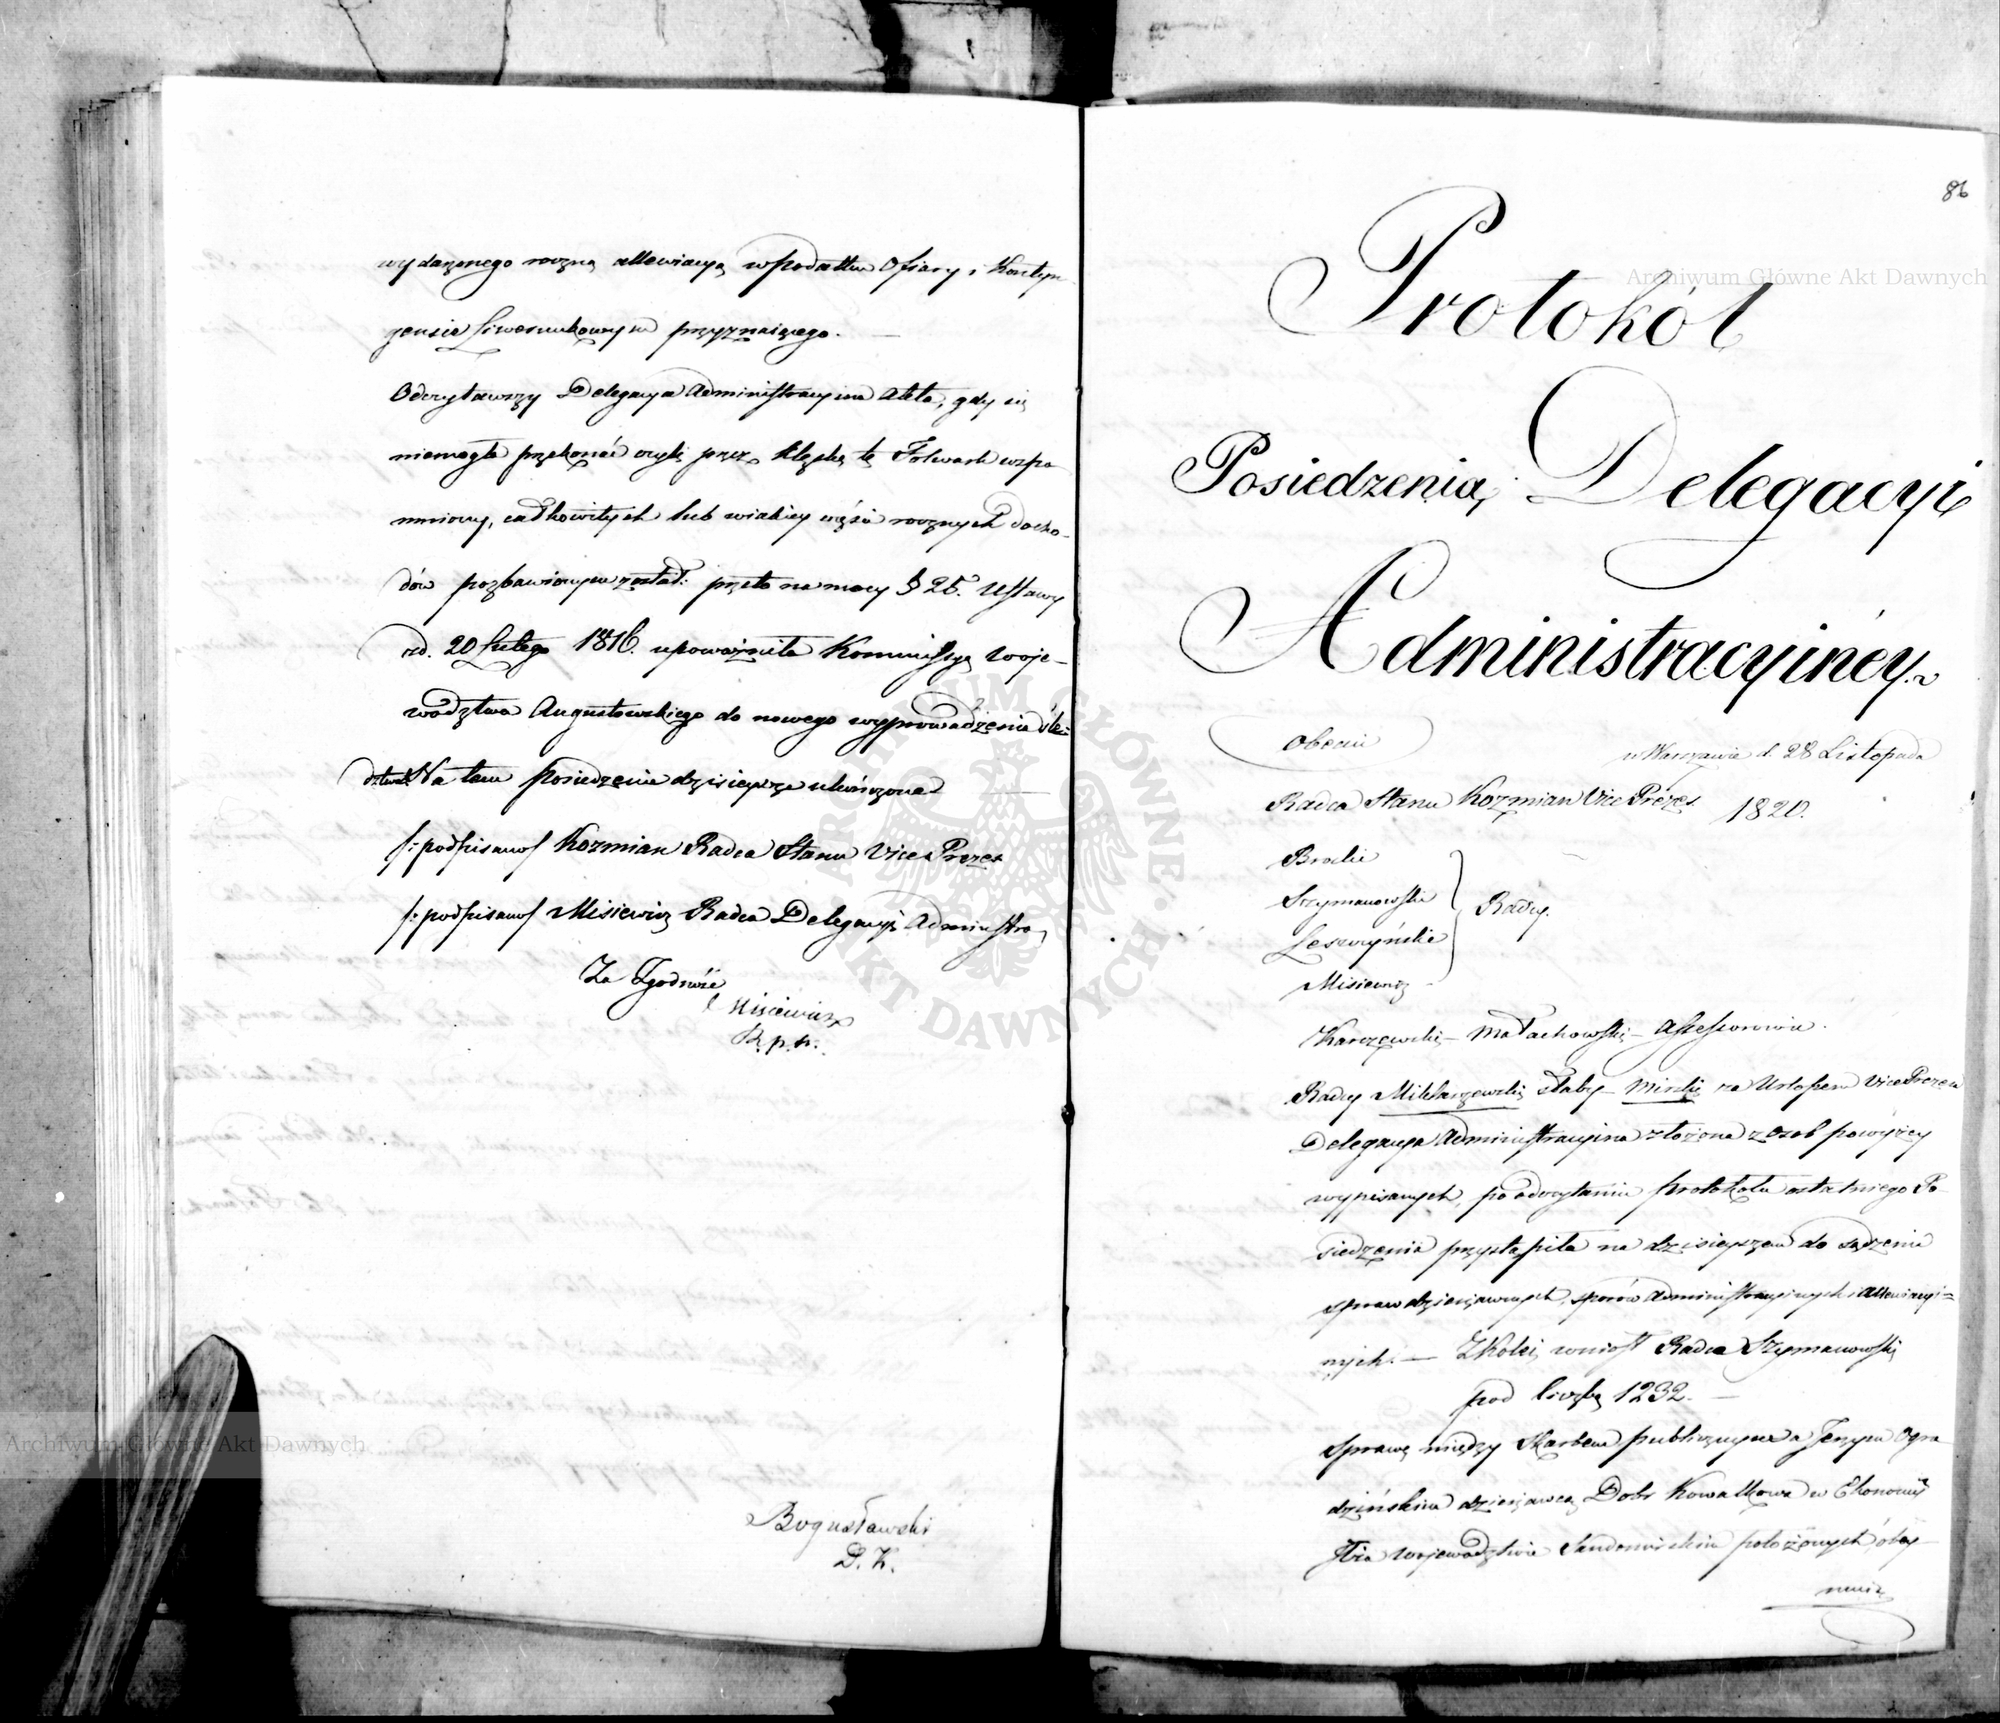 wydarzonego roczną allewiacyą w podatku Ofiary i Kontyn
gensie Liwerunkowym przyznaiącego. —
Odczytawszy Delegacya Administracyina Akta, gdy się
niemogła przekonać czyli przez klęskę tę Folwark wspo
mniony, całkowitych lub wiakiey części rocznych docho-
dów pozbawionym został: przeto na mocy § 25. Ustawy
z d. 20 Lutego 1816. upoważniła Kommissyą Woje-
wództwa Augustowskiego do nowego wyprowadzenia śle=
dztwa. Na tem Posiedzenie dzisieysze ukończone
/: podpisano/ Kozmian Radca Stanu Vice Prezes
/: podpisano/ Misiewicz Radca Delegacyi Administra
Za Zgodność
Misiewicz
R. p. k.
Bogusławski
D. K.
86
Protokół
Posiedzenia Delegacyi
Administracyinéy.
Obecni
w Warszawie d. 28 Listopada
1820.
Radca Stanu Kozmian Vice Prezes
Brocki
Szymanowski
Leszczyński
Misiewicz
Radcy.
Karczewski — Małachowski — Assessorowie.
Radcy Miklaszewski Słaby — Mirski za Urlopem Vice Prezesa
Delegacya Administracyina złożona z osob powyżey
wypisanych, po odczytaniu protokółu ostatniego Po-
siedzenia przystąpiła na dzisieyszem do sądzenia
spraw dzierżawnych, sporów Administracyinych i allewiacyi=
nych. — Z kolei wniosł Radca Szymanowski
pod liczbą 1232. —
Sprawę między Skarbem publicznym a Jerzym Ogro
dzińskim dzierżawcą Dobr Kowalkowa w Ekonomii
Iłża Wojewodztwie Sandomirskim położonych, obey-